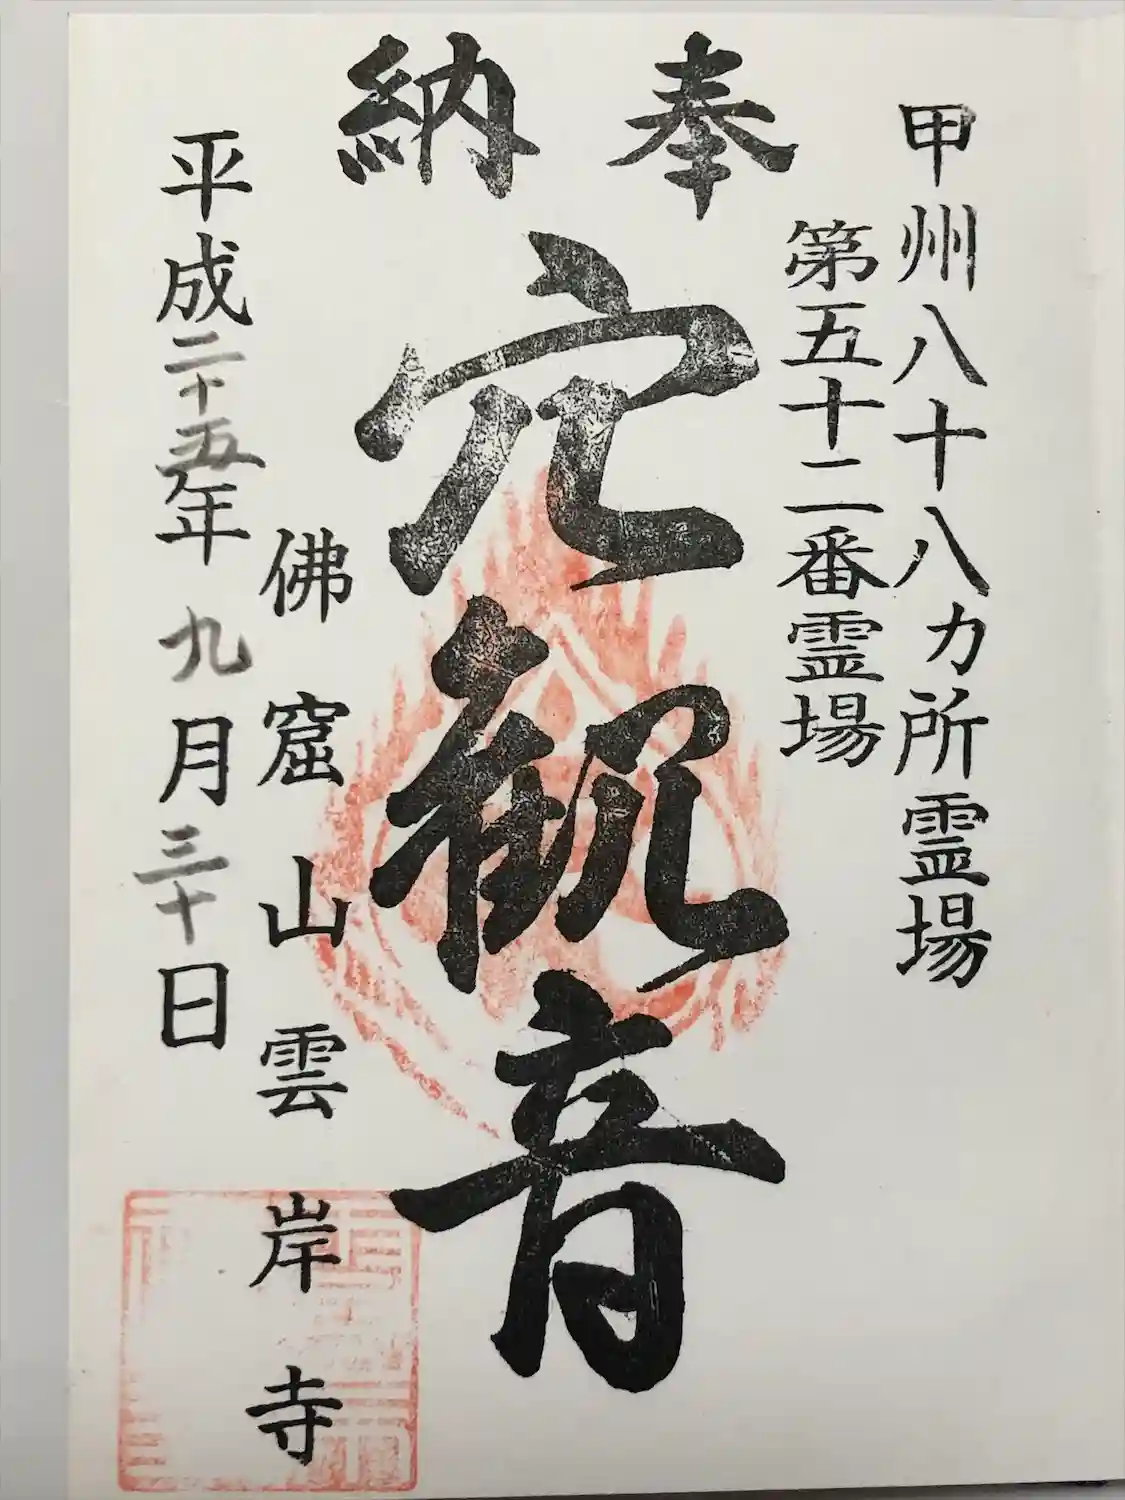 甲州八十八カ所霊場
第五十二番霊場
奉納
穴観音
佛窟山雲岸寺
平成二十五年九月三十日